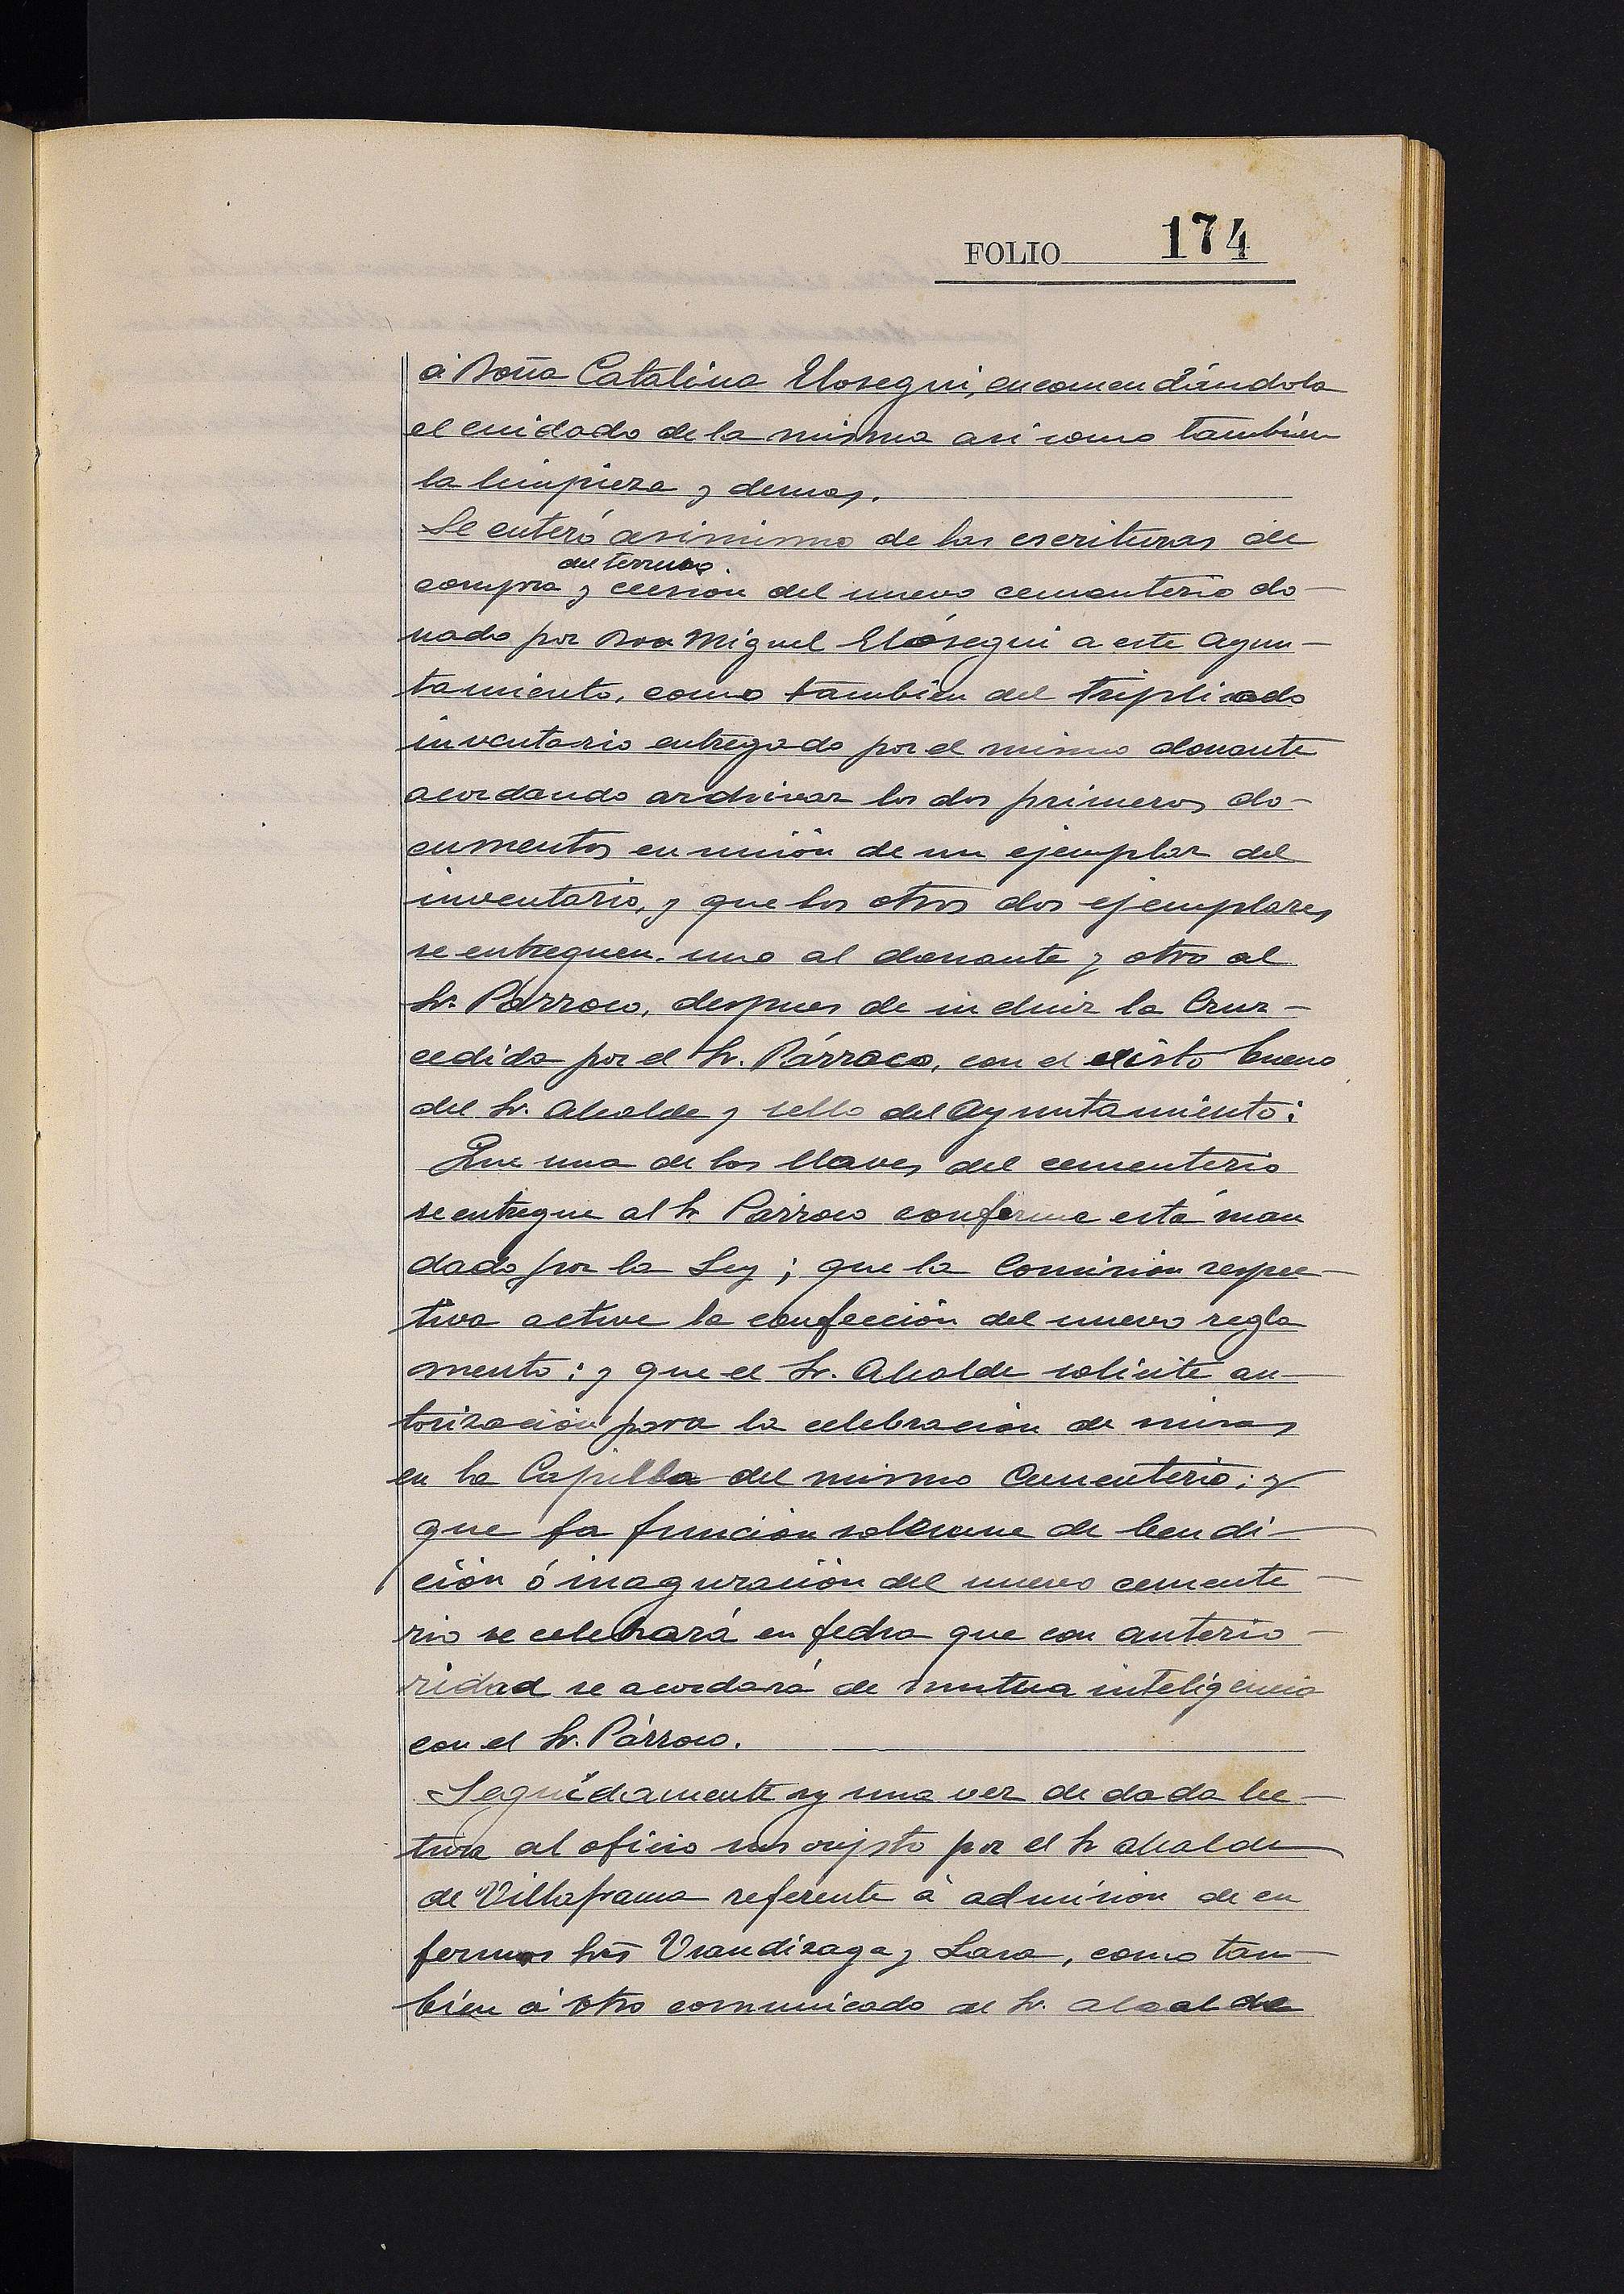 FOLIO 174
á Doña Catalina Elosegui, encomendándola
el cuidado de la misma asi como tambien
la limpieza y demas.
Se enteró asimismo de las escrituras de
del terreno
compra y cesion del nuevo cementerio do-
nado por Don Miguel Elósegui a este Ayun-
tamiento, como tambien del triplicado
inventario entregado por el mismo donante
acordando archivar los dos primeros do-
cumentos en unión de un ejemplar del
inventario, y que los otros dos ejemplares
se entreguen. uno al donante y otro al
Sr. Párroco, despues de incluir la Cruz-
cedida por el Sr. Párroco, con el visto bueno
del Sr. Alcalde y sello del Ayuntamiento:
Que una de las llaves del cementerio
se entregue al Sr Párroco conforme está man
dado por la Ley; que la Comision respec-
tiva active la confección del nuevo regla
mento: y que el Sr. Alcalde solicite au-
torización para la celebración de misas
en la Capilla del mismo Cementerio; y
que la función solemne de bendi-
ción ó inaguración del nuevo cemente-
rio se celebrará en fecha que con anterio-
ridad se acordará de mutua inteligencia
con el Sr. Párroco.
Seguidamente y una vez de dada lec-
tura al oficio suscripto por el Sr alcalde
de Villafranca referente á admision de en
fermos Srs Urandizaga y Lasa, como tam-
bien á otro comunicado del Sr. alcalde